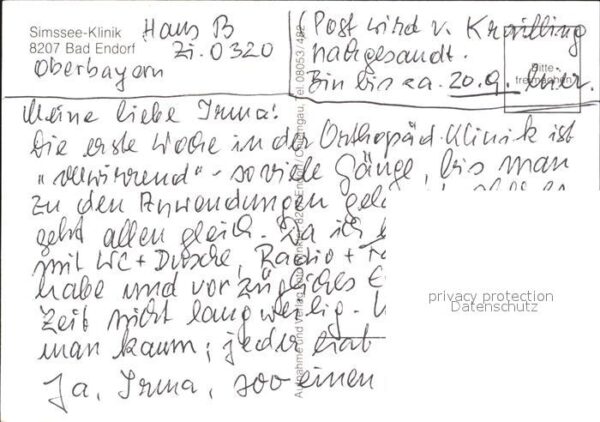 Simssee-Klinik Haus B
8207 Bad Endorf Zi. 0320
Oberbayern
(Post wird v. Krailling
nachgesandt.
Bitte
freimachen
Bin bis ca. 20.9. hier.
Meine liebe Irma!
Die erste Woche in der Orthopäd. Klinik ist
"verwirrend" - soviele Gänge, bis man
zu den Anwendungen
geht allen gleich. Da ich
mit WC + Dusche, Radio +
habe und vorzügliches
Zeit nicht langweilig.
man kaum; jeder hat
Ja, Irma, soo einen
Aufnahme und Verlag
Tel. 08053/482
privacy protection
Datenschutz